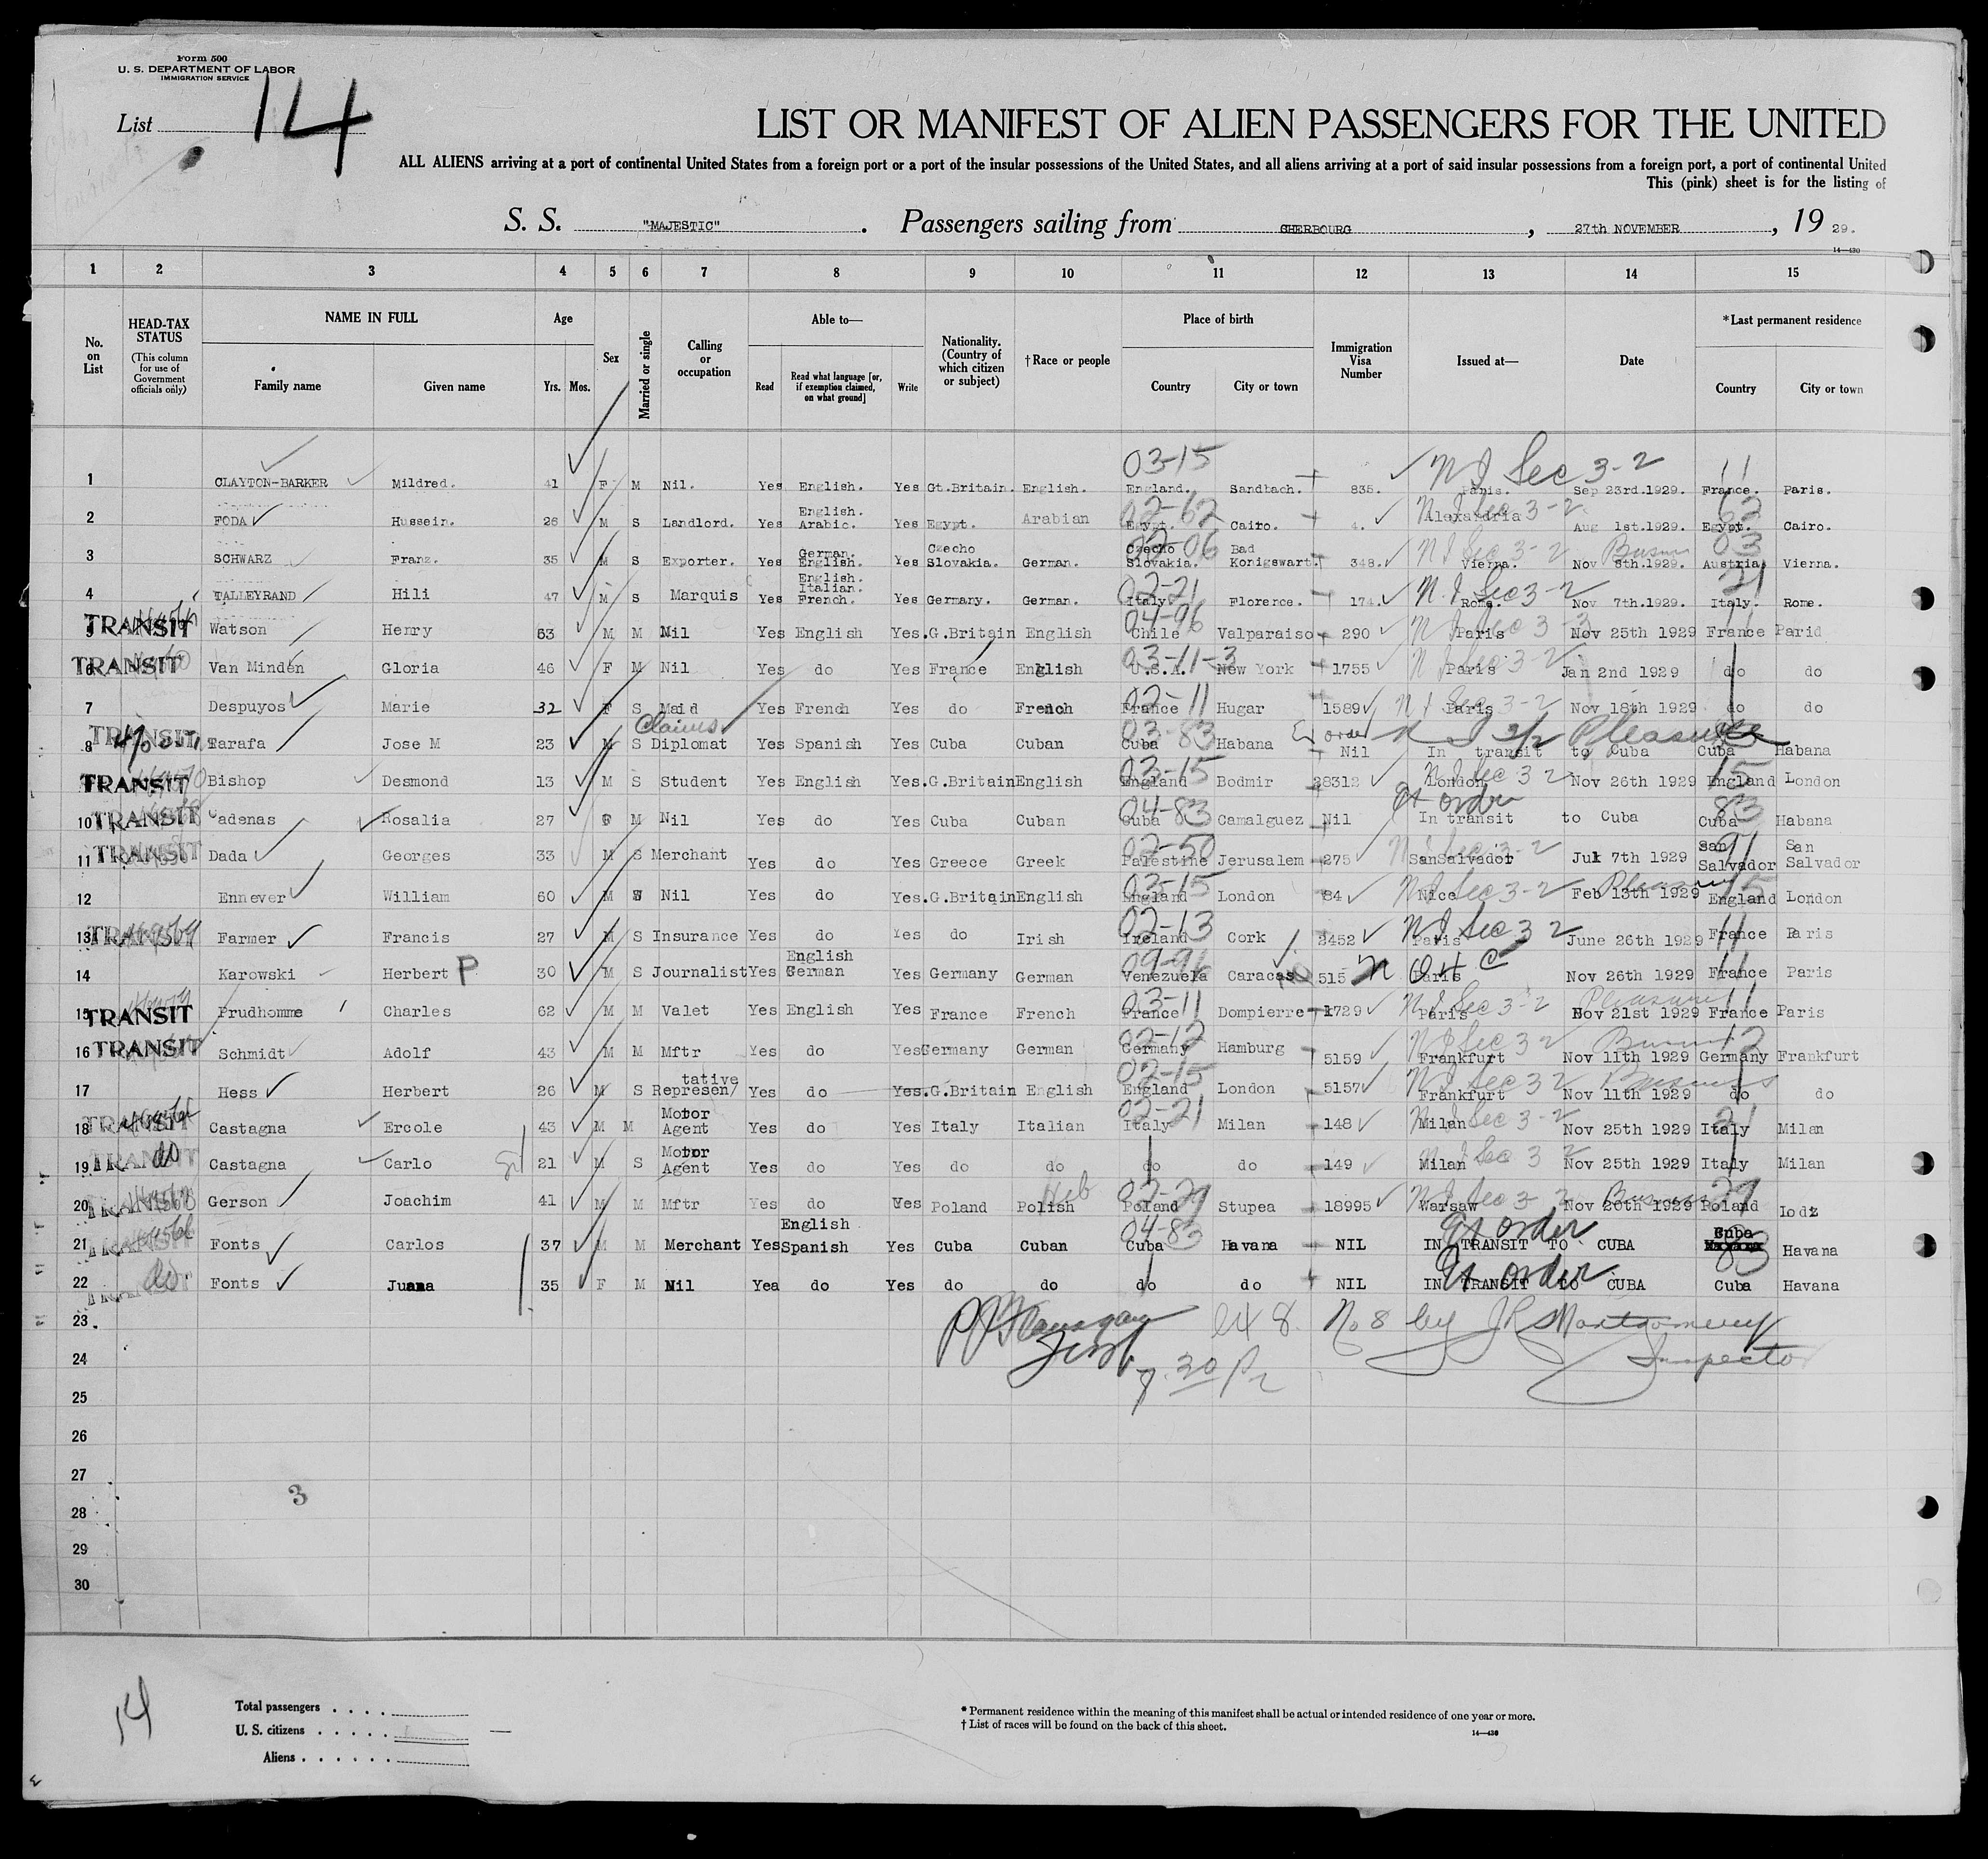 Form 500
U. S. DEPARTMENT OF LABOR
IMMIGRATION SERVICE
List 14
LIST OR MANIFEST OF ALIEN PASSENGERS FOR THE UNITED
ALL ALIENS arriving at a port of continental United States from a foreign port or a port of the insular possessions of the United States, and all aliens arriving at a port of said insular possessions from a foreign port, a port of continental United
This (pink) sheet is for the listing of
S. S. "MAJESTIC". Passengers sailing from CHERBOURG, 27th NOVEMBER, 19 29.
14—430
1 2 3 4 5 6 7 8 9 10 11 12 13 14 15
No. on List
HEAD-TAX STATUS
(This column for use of Government officials only)
NAME IN FULL
Family name Given name
Age
Yrs. Mos.
Sex
Married or single
Calling or occupation
Able to—
Read
Read what language [or, if exemption claimed, on what ground]
Write
Nationality. (Country of which citizen or subject)
†Race or people
Place of birth
Country City or town
Immigration Visa Number
Issued at—
Date
*Last permanent residence
Country City or town
03-15 N I Sec 3-2 11
1 CLAYTON-BARKER Mildred. 41 F M Nil. Yes English. Yes Gt.Britain. English. England. Sandbach. 835. Paris. Sep 23rd.1929. France. Paris.
02-62 N I Sec 3-2 62
2 FODA Hussein. 26 M S Landlord. Yes English. Arabic. Yes Egypt. Arabian Egypt. Cairo. 4. Alexandria Aug 1st.1929. Egypt. Cairo.
02-06 N I Sec 3-2 Busin 03
3 SCHWARZ Franz. 35 M S Exporter. Yes German. English. Yes Czecho Slovakia. German. Czecho Slovakia. Bad Konigswart. 348. Vienna. Nov 8th.1929. Austria. Vienna.
02-21 N. I Sec 3-2 21
4 TALLEYRAND Hili 47 M S Marquis Yes English. Italian. French. Yes Germany. German. Italy. Florence. 174. Rome. Nov 7th.1929. Italy. Rome.
04-96 N I Sec 3-3 11
5 TRANSIT Watson Henry 63 M M Nil Yes English Yes. G.Britain English Chile Valparaiso 290 Paris Nov 25th 1929 France Parid
03-11-3 N I Sec 3-2
6 TRANSIT Van Minden Gloria 46 F M Nil Yes do Yes France English U.S.A. New York 1755 Paris Jan 2nd 1929 do do
02-11 N I Sec 3-2
7 Despuyos Marie 32 F S Maid Yes French Yes do French France Hugar 1589 Paris Nov 18th 1929 do do
Claims 03-83 Ex order N I 3/2 Pleasure 83
8 TRANSIT Tarafa Jose M 23 M S Diplomat Yes Spanish Yes Cuba Cuban Cuba Habana Nil In transit to Cuba Cuba Habana
03-15 N I Sec 3 2 15
9 TRANSIT Bishop Desmond 13 M S Student Yes English Yes. G.Britain English England Bodmir 28312 London Nov 26th 1929 England London
04-83 Ex order 83
10 TRANSIT Cadenas Rosalia 27 F M Nil Yes do Yes Cuba Cuban Cuba Camalguez Nil In transit to Cuba Cuba Habana
02-50 N I Sec 3-2 91
11 TRANSIT Dada Georges 33 M S Merchant Yes do Yes Greece Greek Palestine Jerusalem 275 SanSalvador Jul 7th 1929 San Salvador San Salvador
03-15 N I Sec 3-2 Pleasure 15
12 Ennever William 60 M Nil Yes do Yes. G.Britain English England London 84 Nice Feb 13th 1929 England London
02-13 N I Sec 3 2 11
13 TRANSIT Farmer Francis 27 M S Insurance Yes do Yes do Irish Ireland Cork 2452 Paris June 26th 1929 France Paris
09-96 N O H C 11
14 Karowski Herbert P 30 M S Journalist Yes English German Yes Germany German Venezuela Caracas 515 Paris Nov 26th 1929 France Paris
03-11 N I Sec 3-2 Pleasure 11
15 TRANSIT Prudhomme Charles 62 M M Valet Yes English Yes France French France Dompierre 1729 Paris Nov 21st 1929 France Paris
02-12 N I Sec 3 2 12
16 TRANSIT Schmidt Adolf 43 M M Mftr Yes do Yes Germany German Germany Hamburg 5159 Frankfurt Nov 11th 1929 Germany Frankfurt
02-15 N I Sec 3 2 Business
17 Hess Herbert 26 M S Representative Yes do Yes. G.Britain English England London 5157 Frankfurt Nov 11th 1929 do do
02-21 N I Sec 3-2 21
18 TRANSIT Castagna Ercole 43 M M Motor Agent Yes do Yes Italy Italian Italy Milan 148 Milan Nov 25th 1929 Italy Milan
N I Sec 3 2
19 TRANSIT do Castagna Carlo 21 M S Motor Agent Yes do Yes do do do do 149 Milan Nov 25th 1929 Italy Milan
Heb 02-29 N I Sec 3-2 Business 29
20 TRANSIT Gerson Joachim 41 M M Mftr Yes do Yes Poland Polish Poland Stupea 18995 Warsaw Nov 20th 1929 Poland Lodz
04-83 Ex order 83
21 TRANSIT Fonts Carlos 37 M M Merchant Yes English Spanish Yes Cuba Cuban Cuba Havana NIL IN TRANSIT TO CUBA Cuba Havana
Ex order
22 TRANSIT do Fonts Juana 35 F M Nil Yea do Yes do do do do NIL IN TRANSIT TO CUBA Cuba Havana
23
P J Flanagan
Insp.
No 8 by J R Montgomery
Inspector
24
7.30 P
25
26
27
28
3
29
30
14
Total passengers
U. S. citizens
Aliens
* Permanent residence within the meaning of this manifest shall be actual or intended residence of one year or more.
† List of races will be found on the back of this sheet.
14—430